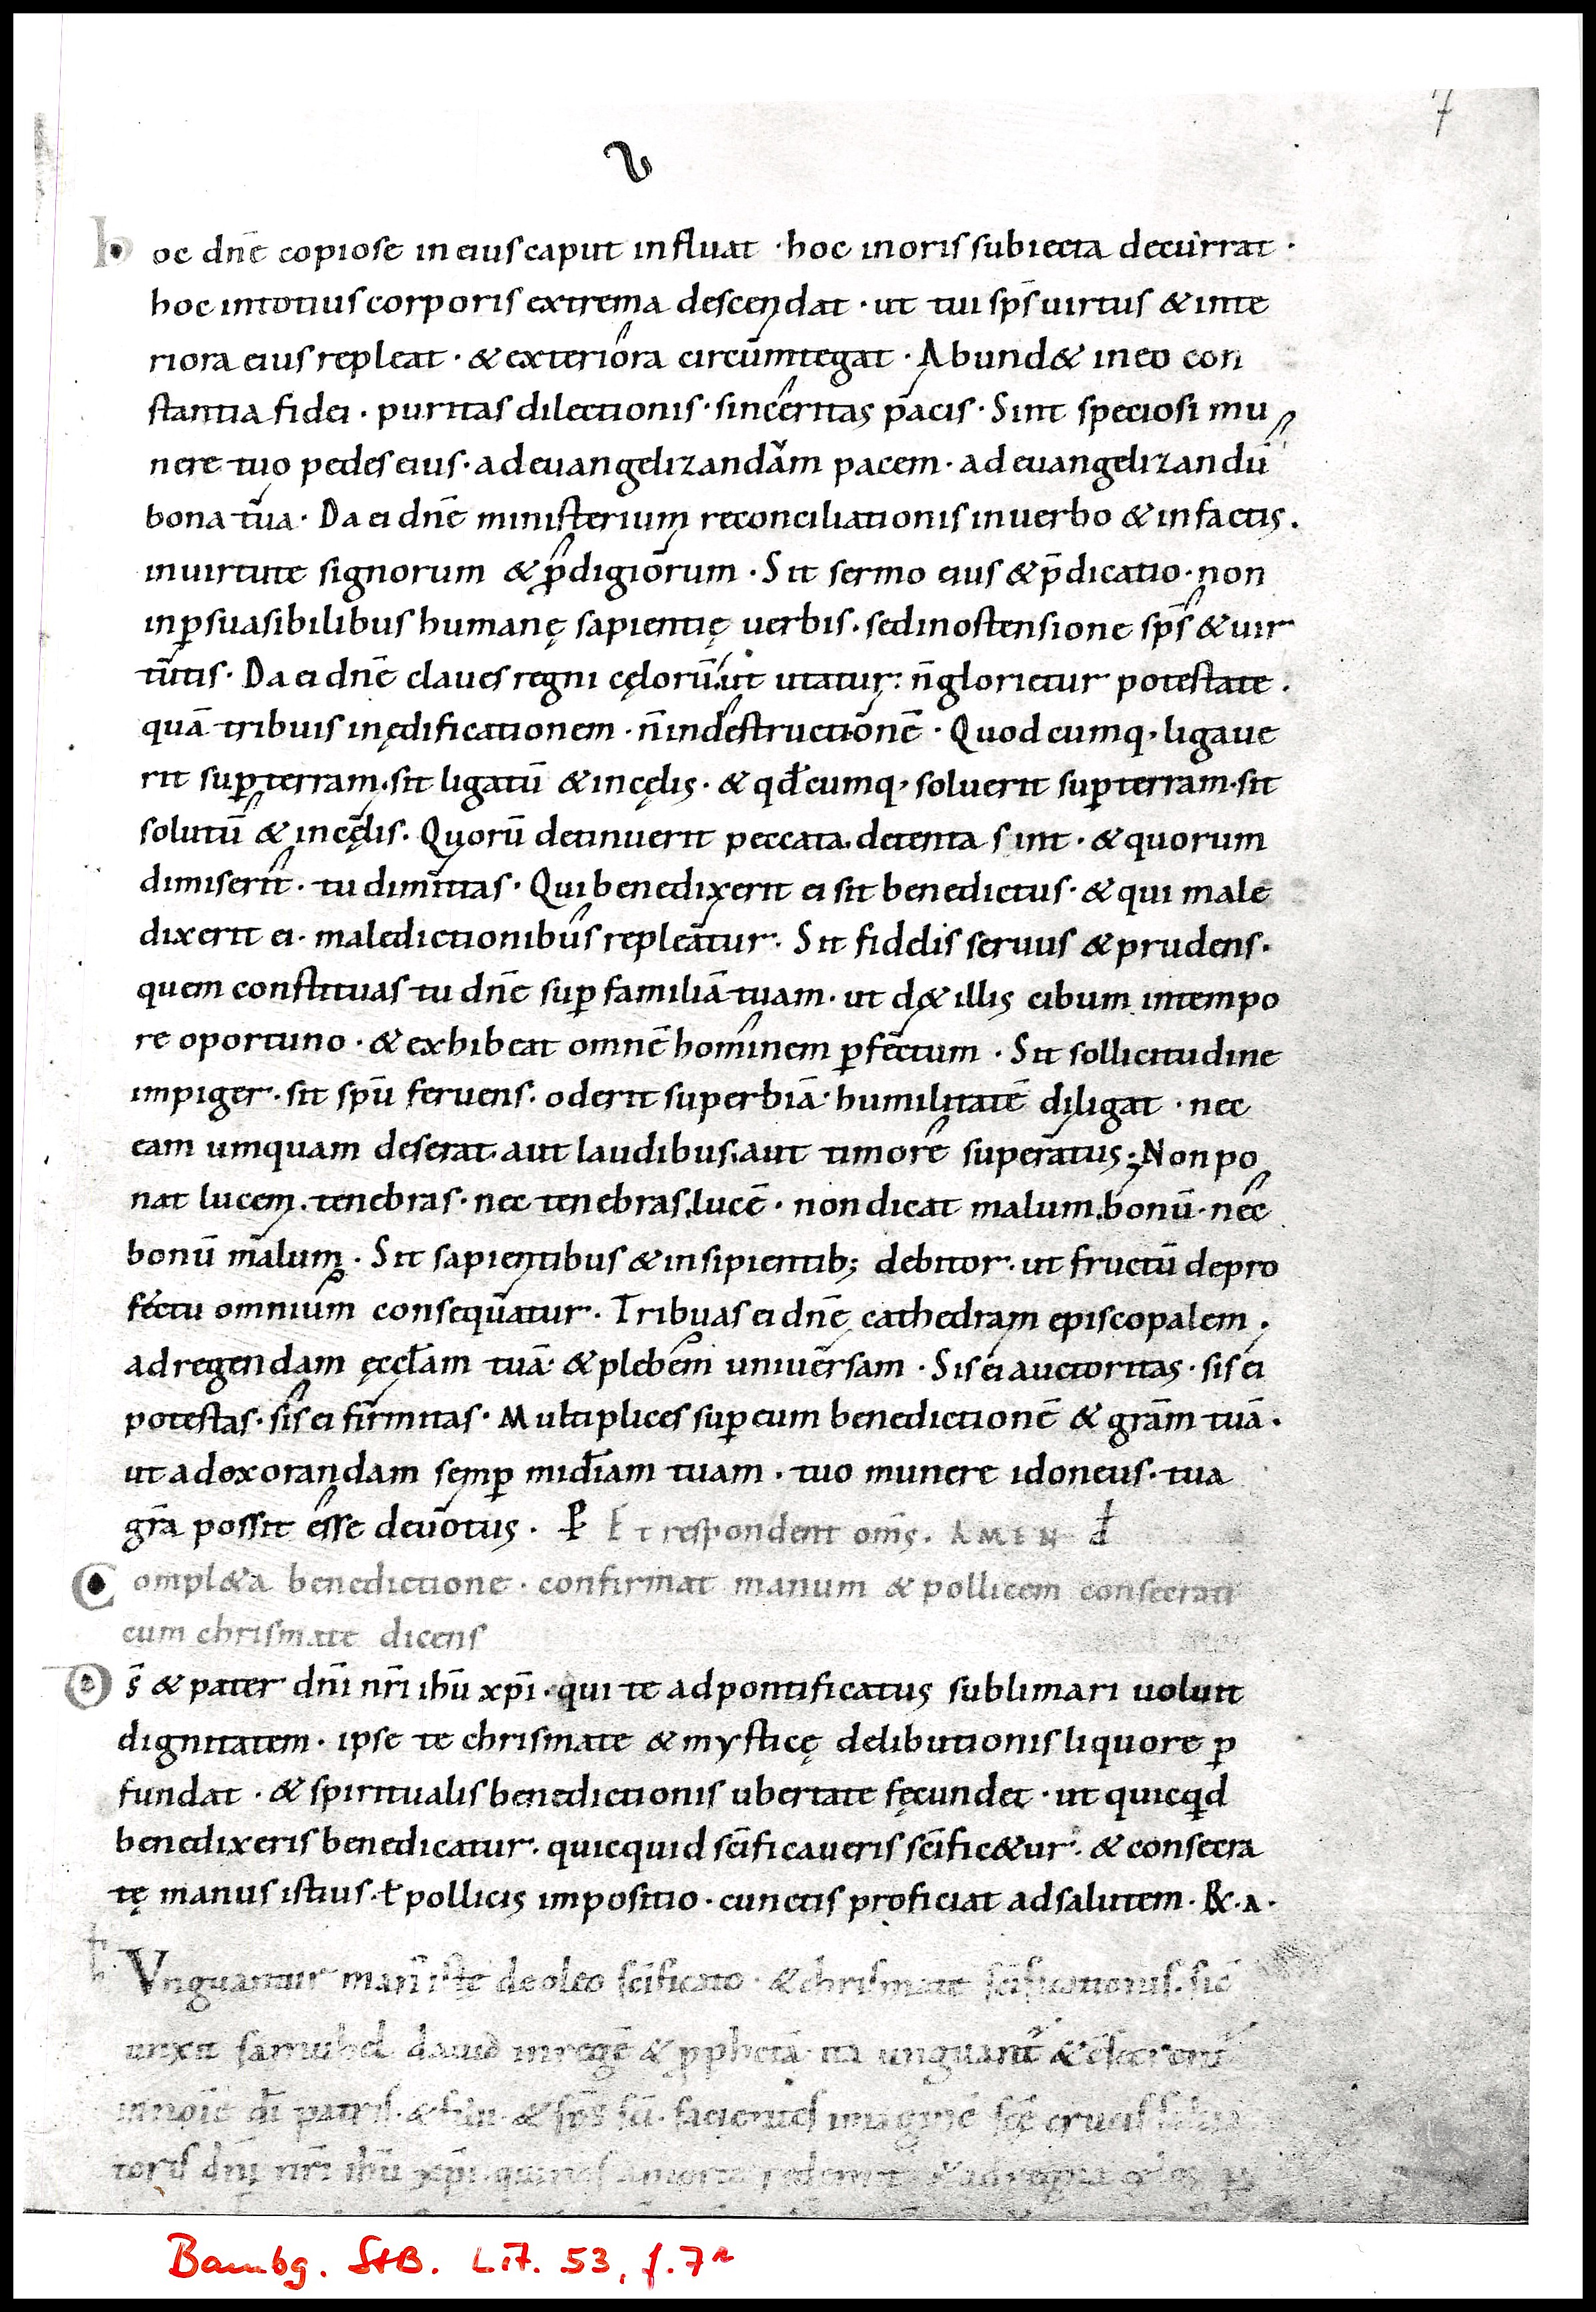 7
hoc dnē copiose in eius caput influat · hoc in oris subiecta decurrat ·
hoc in totius corporis extrema descendat · ut tui sp̄s uirtus & inte
riora eius repleat · & exteriora circūmtegat · Abund& in eo con
stantia fidei · puritas dilectionis · sinceritas pacis · Sint speciosi mu
nere tuo pedes eius · ad euangelizandam pacem · ad euangelizandū
bona tua · Da ei dnē ministerium reconciliationis in uerbo & in factis ·
in uirtute signorum & ꝓdigiorum · Sit sermo eius & p̄dicatio · non
in ꝑsuasibilibus humanę sapientię uerbis · sed in ostensione sp̄s & uir
tutis · Da ei dnē claues regni cęlorū · ut utatur · n̄ glorietur potestate ·
quā tribuis in ędificationem · n̄ in destructionē · Quodcumq, ligaue
rit suꝑ terram · sit ligatū & in cęlis · & qđcumq, soluerit suꝑ terram · sit
solutū & in cęlis · Quorū detinuerit peccata · detenta sint · & quorum
dimiserit · tu dimittas · Qui benedixerit ei sit benedictus · & qui male
dixerit ei · maledictionibus repleatur · Sit fidelis seruus & prudens ·
quem constituas tu dnē suꝑ familiā tuam · ut d& illis cibum in tempo
re oportuno · & exhibeat omnē hominem ꝑfectum · Sit sollicitudine
impiger · sit spū feruens · oderit superbiā · humilitatē diligat · nec
eam umquam deserat · aut laudibus · aut timore superatus ; Non po
nat lucem · tenebras · nec tenebras · lucē · non dicat malum · bonū · nec
bonū malum · Sit sapientibus & insipientib; debitor · ut fructū de pro
fectu omnium consequatur · Tribuas ei dnē cathedram episcopalem ·
ad regendam ęccl̄am tuā · & plebem uniuersam · Sis ei auctoritas · sis ei
potestas · sis ei firmitas · Multiplices suꝑ eum benedictionē & grām tuā ·
ut ad exorandam semꝑ mīdiam tuam · tuo munere idoneus · tua
grā possit esse deuotus · P Et respondent om̄s · AMEN
Compl&a benedictione · confirmat manum & pollicem consecrati
cum chrismate dicens
Ds̄ & pater dnī nrī ihū xpī · qui te ad pontificatus sublimari uoluit
dignitatem · ipse te chrismate & mysticę delibutionis liquore ꝑ
fundat · & spiritualis benedictionis ubertate fęcundet · ut quicqid
benedixeris benedicatur · quicquid scīficaueris scīfic&ur · & consecra
tę manus istius · ł pollicis impositio · cunctis proficiat ad salutem · ℟ · A ·
Unguantur man' istę de oleo scīficato · & chrismate scīficationis · sic̄
unxit samuhel dauid in regē & ꝓphetā · ita unguant̄ &
in noīe dī patris · & filii · & sp̄s scī · facientes imaginē scē crucis
toris dnī nrī ihū xpī · qui nos a morte redemit · & ad regna
Bambg. StB. Lit. 53, f. 7r